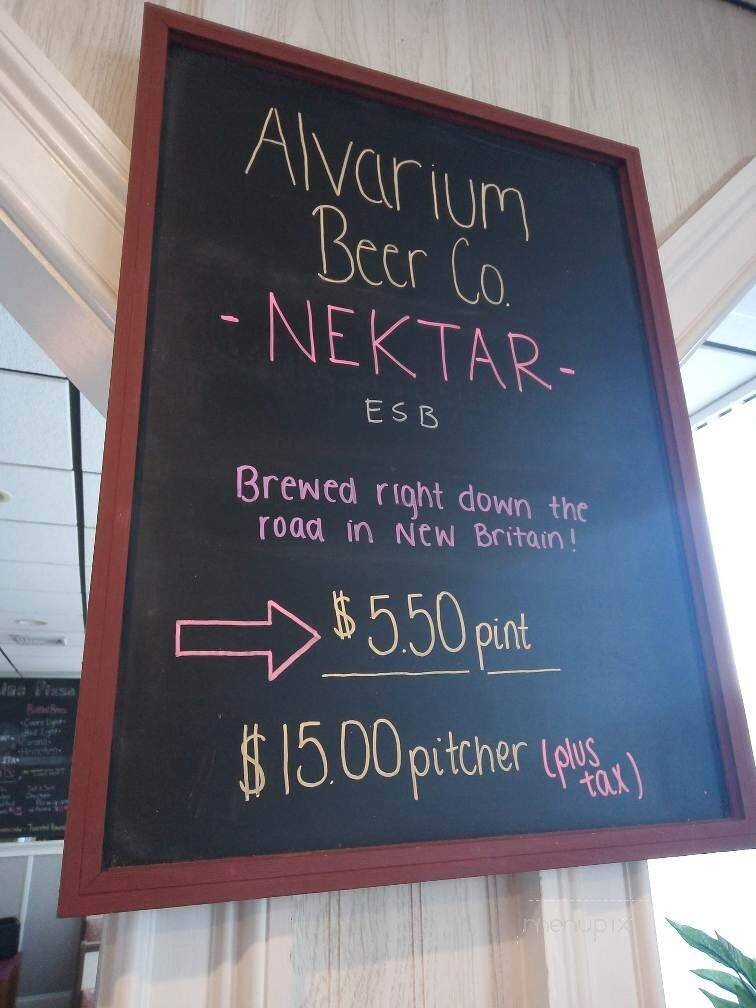 Alvarium
Beer Co.
- NEKTAR -
ESB
Brewed right down the
road in New Britain!
$5.50 pint
$15.00 pitcher (plus
tax)
menupix